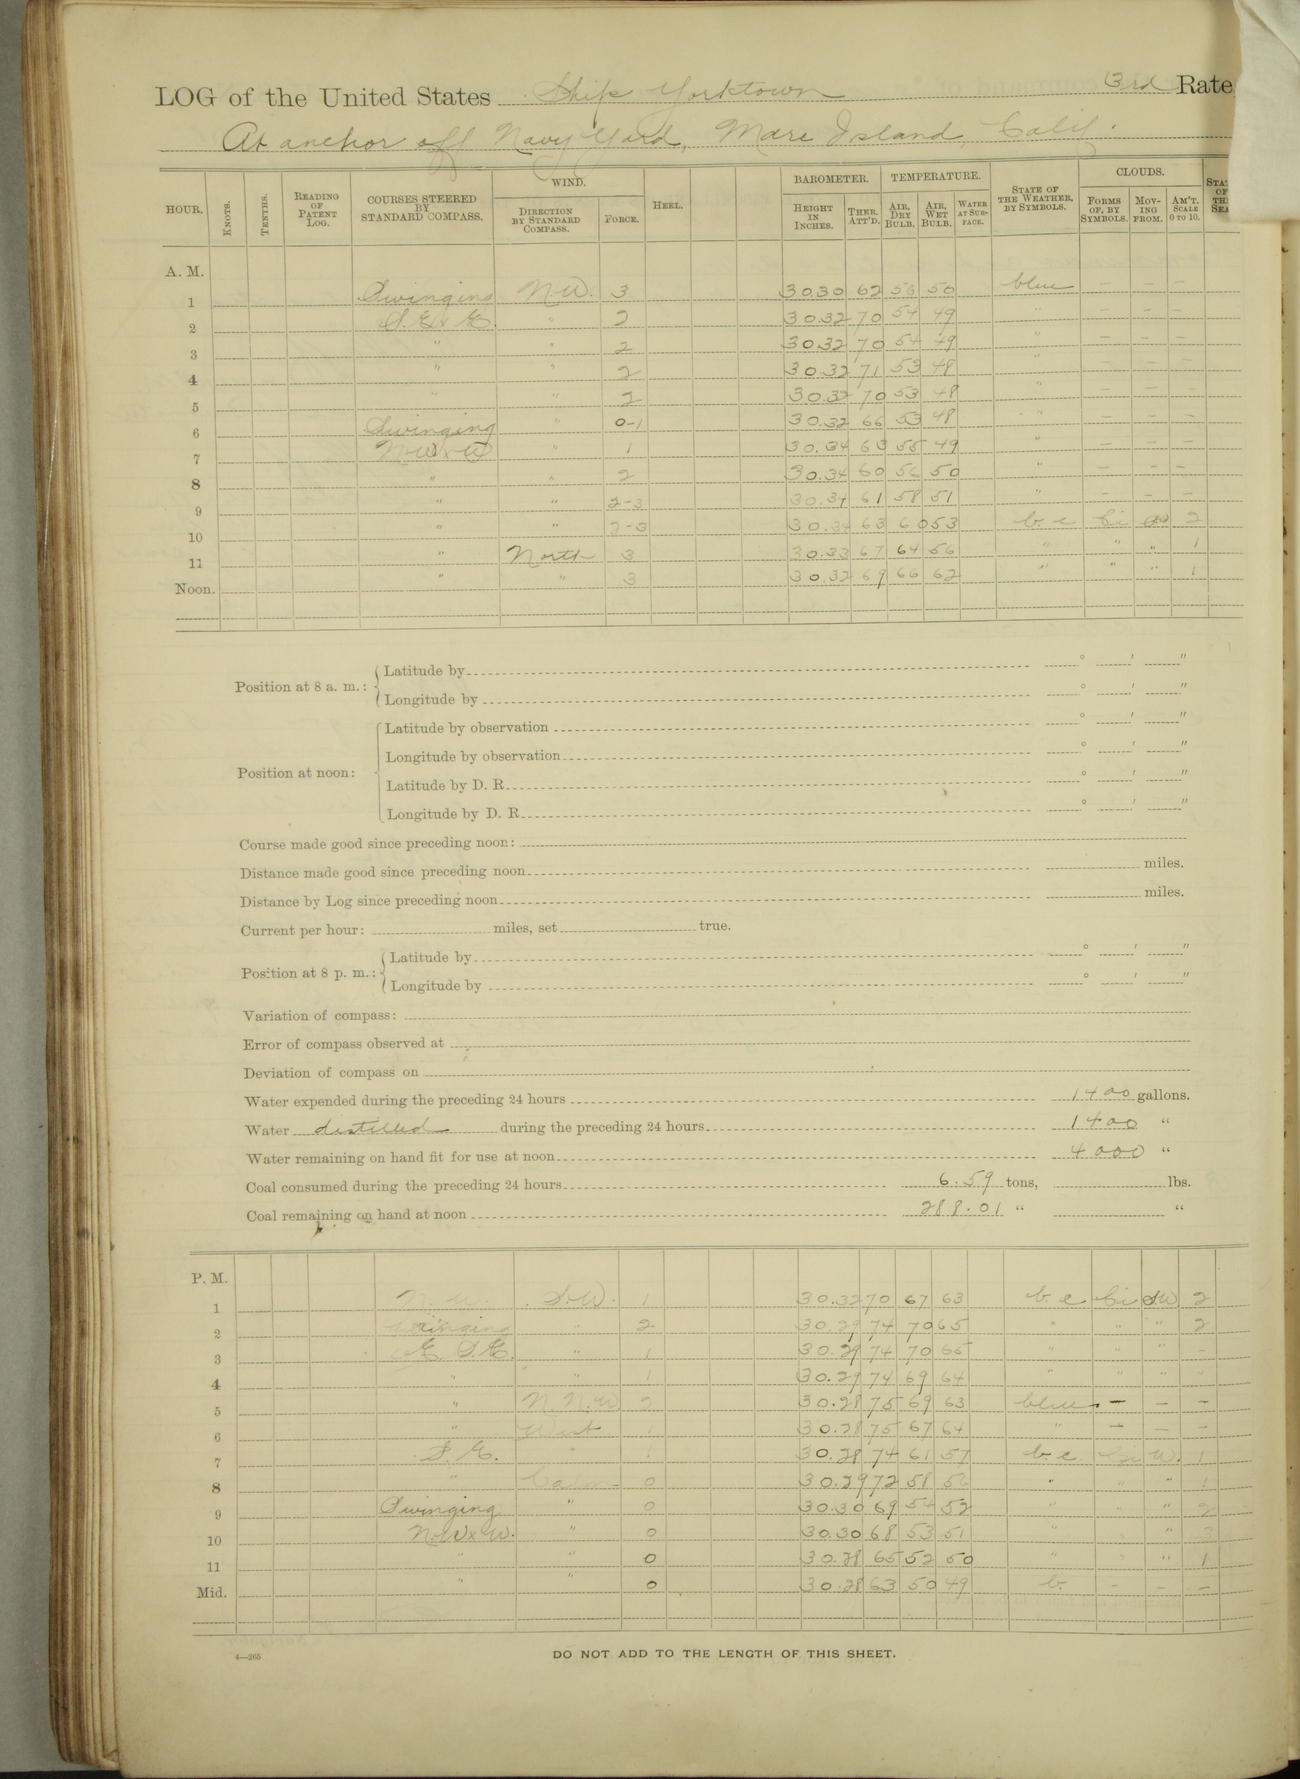 LOG of the United States Ship Yorktown 3rd Rate
At anchor off Navy Yard, Mare Island, Calif.
HOUR. KNOTS. TENTHS. READING OF PATENT LOG. COURSES STEERED BY STANDARD COMPASS. WIND. DIRECTION BY STANDARD COMPASS. FORCE. HEEL. BAROMETER. HEIGHT IN INCHES. THER. ATT'D. TEMPERATURE. AIR, DRY BULB. AIR, WET BULB. WATER AT SURFACE. STATE OF THE WEATHER, BY SYMBOLS. CLOUDS. FORMS OF, BY SYMBOLS. MOVING FROM. AM'T. SCALE 0 TO 10.
A. M.
1 Swinging N.W. 3 30.30 62 56 50 blue — — —
2 S.E x E. " 2 30.32 70 54 49 " — — —
3 " " 2 30.32 70 54 49 " — — —
4 " " 2 30.32 71 53 48 " — — —
5 " " 2 30.32 70 53 48 " — — —
6 Swinging " 0-1 30.32 66 53 48 " — — —
7 N.W x W " 1 30.34 63 55 49 " — — —
8 " " 2 30.34 60 56 50 " — — —
9 " " 2-3 30.34 61 58 51 " — — —
10 " " 2-3 30.34 63 60 53 b.c Ci 2
11 " North 3 30.33 67 64 56 " " " 1
Noon. " " 3 30.32 69 66 62 " " " 1
Position at 8 a. m.: Latitude by ° ' "
Longitude by ° ' "
Position at noon: Latitude by observation ° ' "
Longitude by observation ° ' "
Latitude by D. R. ° ' "
Longitude by D. R. ° ' "
Course made good since preceding noon:
Distance made good since preceding noon miles.
Distance by Log since preceding noon miles.
Current per hour: miles, set true.
Position at 8 p. m.: Latitude by ° ' "
Longitude by ° ' "
Variation of compass:
Error of compass observed at
Deviation of compass on
Water expended during the preceding 24 hours 1400 gallons.
Water distilled during the preceding 24 hours 1400 "
Water remaining on hand fit for use at noon 4000 "
Coal consumed during the preceding 24 hours 6.59 tons, lbs.
Coal remaining on hand at noon 288.01 " "
P. M.
1 N.W. S.W. 1 30.32 70 67 63 b.c Ci S.W 2
2 Swinging " 2 30.29 74 70 65 " " " 2
3 E.S.E. " 1 30.29 74 70 65 " " " -
4 " " 1 30.29 74 69 64 " " " "
5 " N.N.W 2 30.28 75 69 63 blue — — —
6 " West 1 30.28 75 67 64 " — — —
7 S.E. " 1 30.28 74 61 57 b.c. Ci W. 1
8 " Calm 0 30.29 72 58 56 " " " 1
9 Swinging " 0 30.30 69 52 " " 2
10 N.W x W. " 0 30.30 68 53 51 " " 3
11 " " 0 30.28 65 52 50 " " " 1
Mid. " " 0 30.28 63 50 49 b. — — —
4—265
DO NOT ADD TO THE LENGTH OF THIS SHEET.